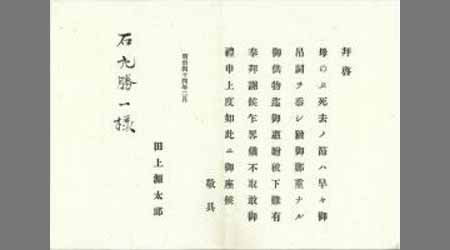 拝啓
母のよ死去ノ節ハ早々御
吊詞ヲ忝シ殊御鄭重ナル
御供物迄御恵贈被下難有
奉拜謝候乍畧儀不取敢御
禮申上度如此ニ御座候
敬具
明治四十四年二月
田上源太郎
石丸勝一様